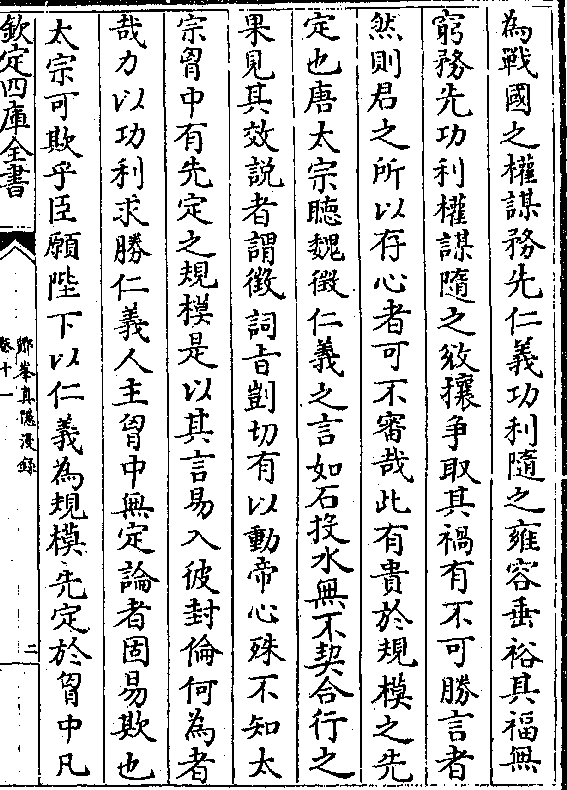 為戰國之權謀務先仁義功利隨之雍容垂裕其福無
窮務先功利權謀隨之紛攘爭取其禍有不可勝言者
然則君之所以存心者可不審哉此有貴於規模之先
定也唐太宗聽魏徵仁義之言如石投水無不契合行之
果見其效説者謂徵詞旨剴切有以動帝心殊不知太
宗胷中有先定之規模是以其言易入彼封倫何為者
哉力以功利求勝仁義人主胷中無定論者固易欺也
太宗可欺乎臣願陛下以仁義為規模先定於胷中凡
欽定四庫全書
鄮峯真隠漫録
卷十一
二